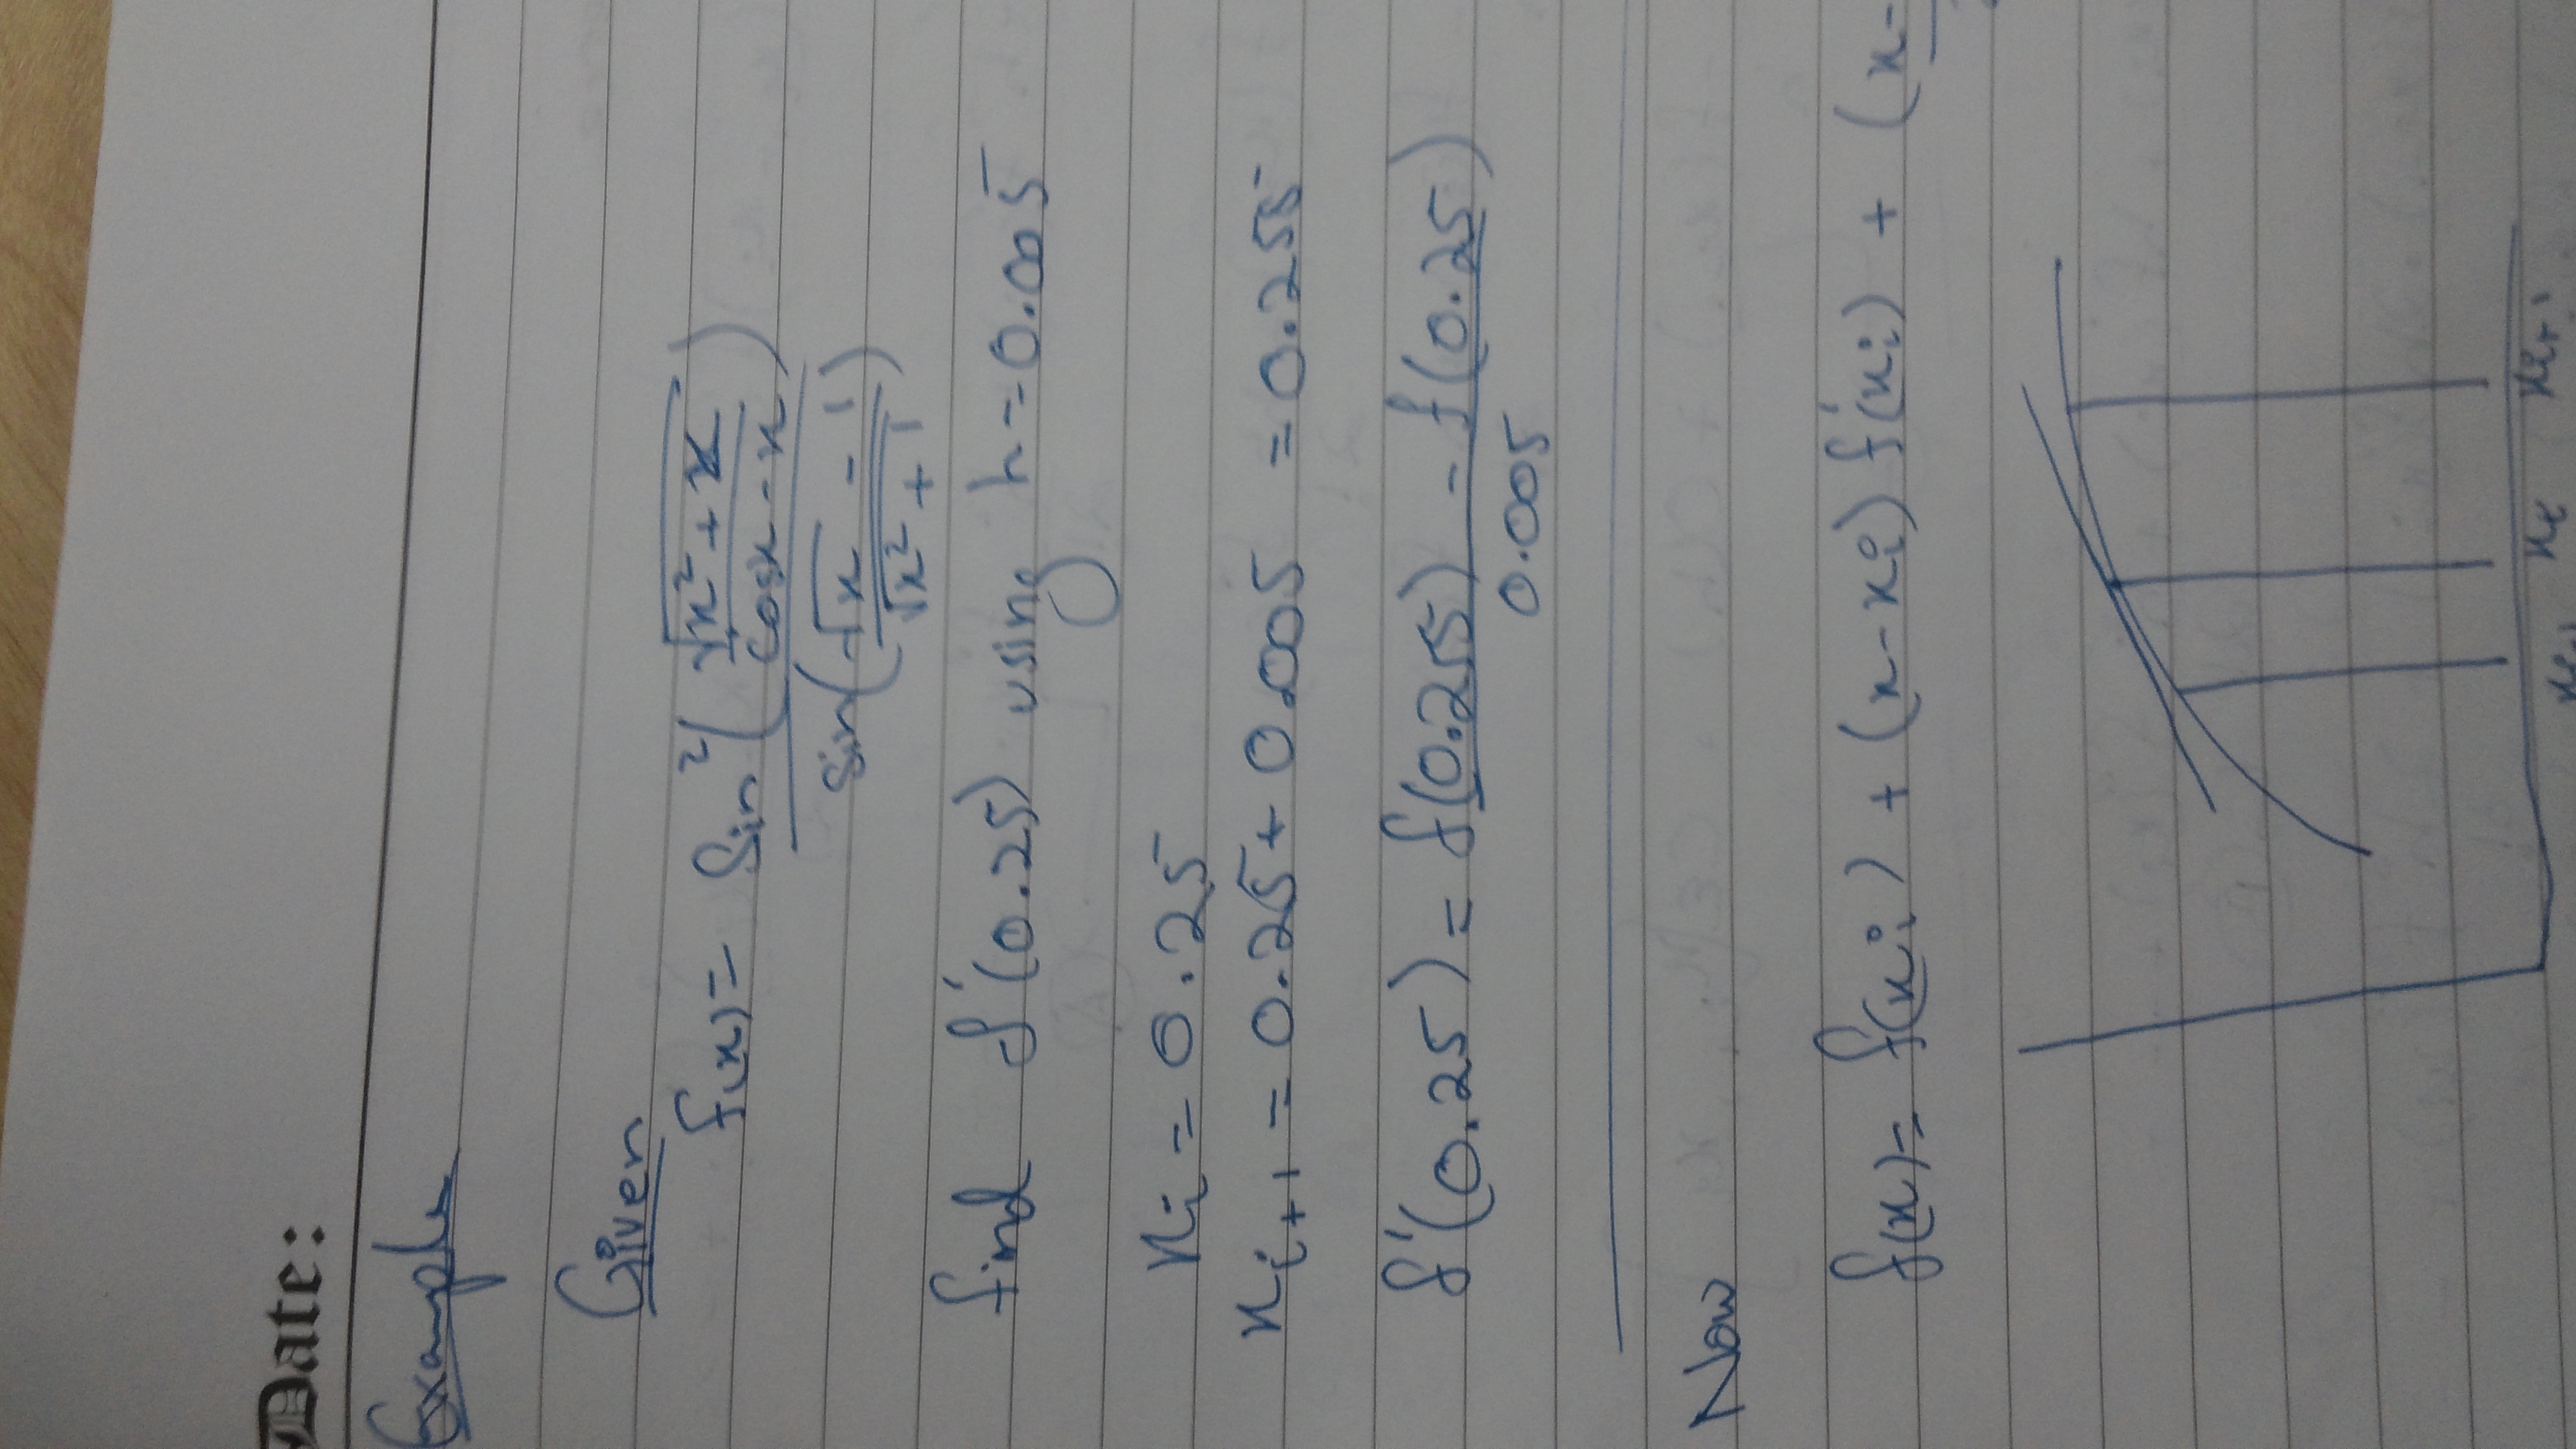 Date:
Example
Given
f(x) = sin²(√(√x² + x / cosx - x))
sin(√x - 1 / √x² + 1)
find f'(0.25) using h = 0.005
xi = 0.25
xi+1 = 0.25 + 0.005 = 0.255
f'(0.25) = f(0.255) - f(0.25)
0.005
Now
f(x) = f(xi) + (x - xi) f'(xi) + (x-
xi xi+1